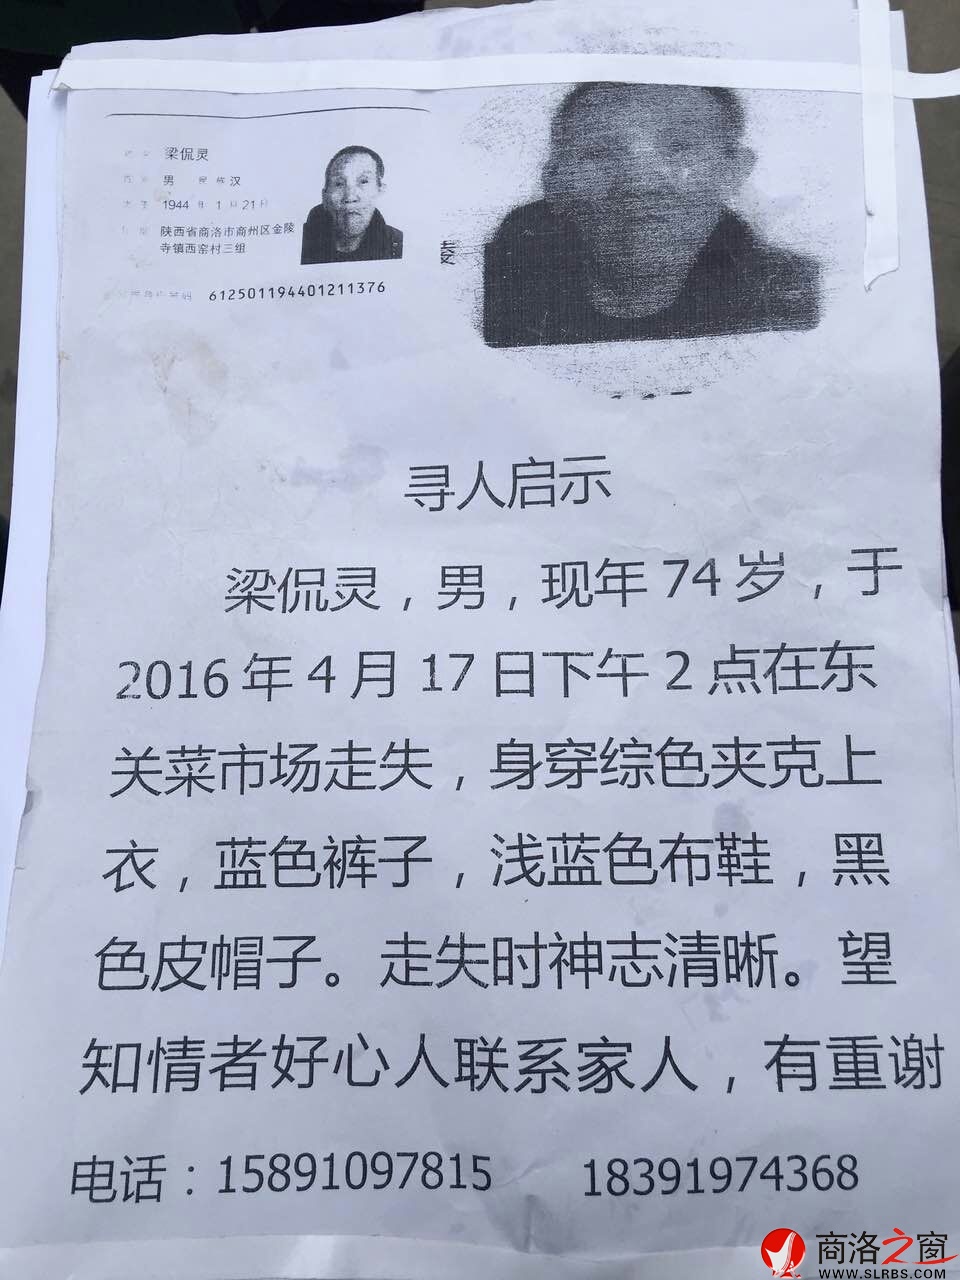 梁侃灵
男 民族 汉
1944 年 1 月 21 日
陕西省商洛市商州区金陵
寺镇西窑村三组
612501194401211376
寻人启示
梁侃灵，男，现年 74 岁，于
2016 年 4 月 17 日下午 2 点在东
关菜市场走失，身穿综色夹克上
衣，蓝色裤子，浅蓝色布鞋，黑
色皮帽子。走失时神志清晰。望
知情者好心人联系家人，有重谢
电话：15891097815 18391974368
商洛之窗
WWW.SLRBS.COM